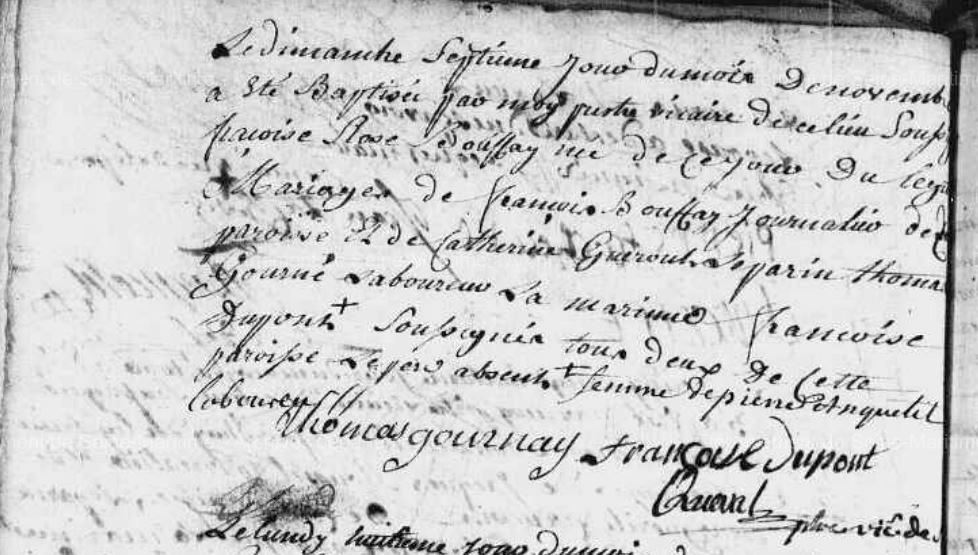 Le dimanche Septieme jour du mois De novemb
a Eté Baptisée par moy prestre vicaire de ce lieu Sousſ
françoise Rose Le Bouffay née de ce jour Du legi
Mariage de françois Bouffay Journalier de
paroisse Et de Catherine Gueroult Le parin thoma
Gourné Laboureur La marinne françoise
Dupont + Soussignés tous deux De Cette
paroisse Le pere absent + femme de pierre Anquetil
laboureur
Thomas gournay françoise Dupont
Quevel
ptre vic de
Le lundy huitieme jour du moi